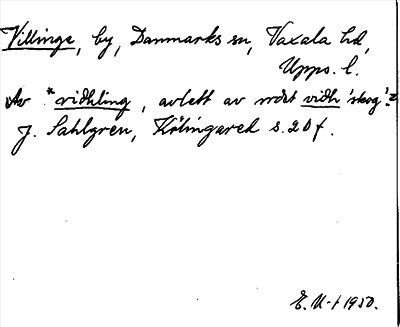 Villinge, by, Danmarks sn, Vaxala hd,
Upps. l.
Av *vidhling, avlett av ordet vidh 'skog'.
J. Sahlgren, Kölingared s. 20 f.
E. U-t 1950.